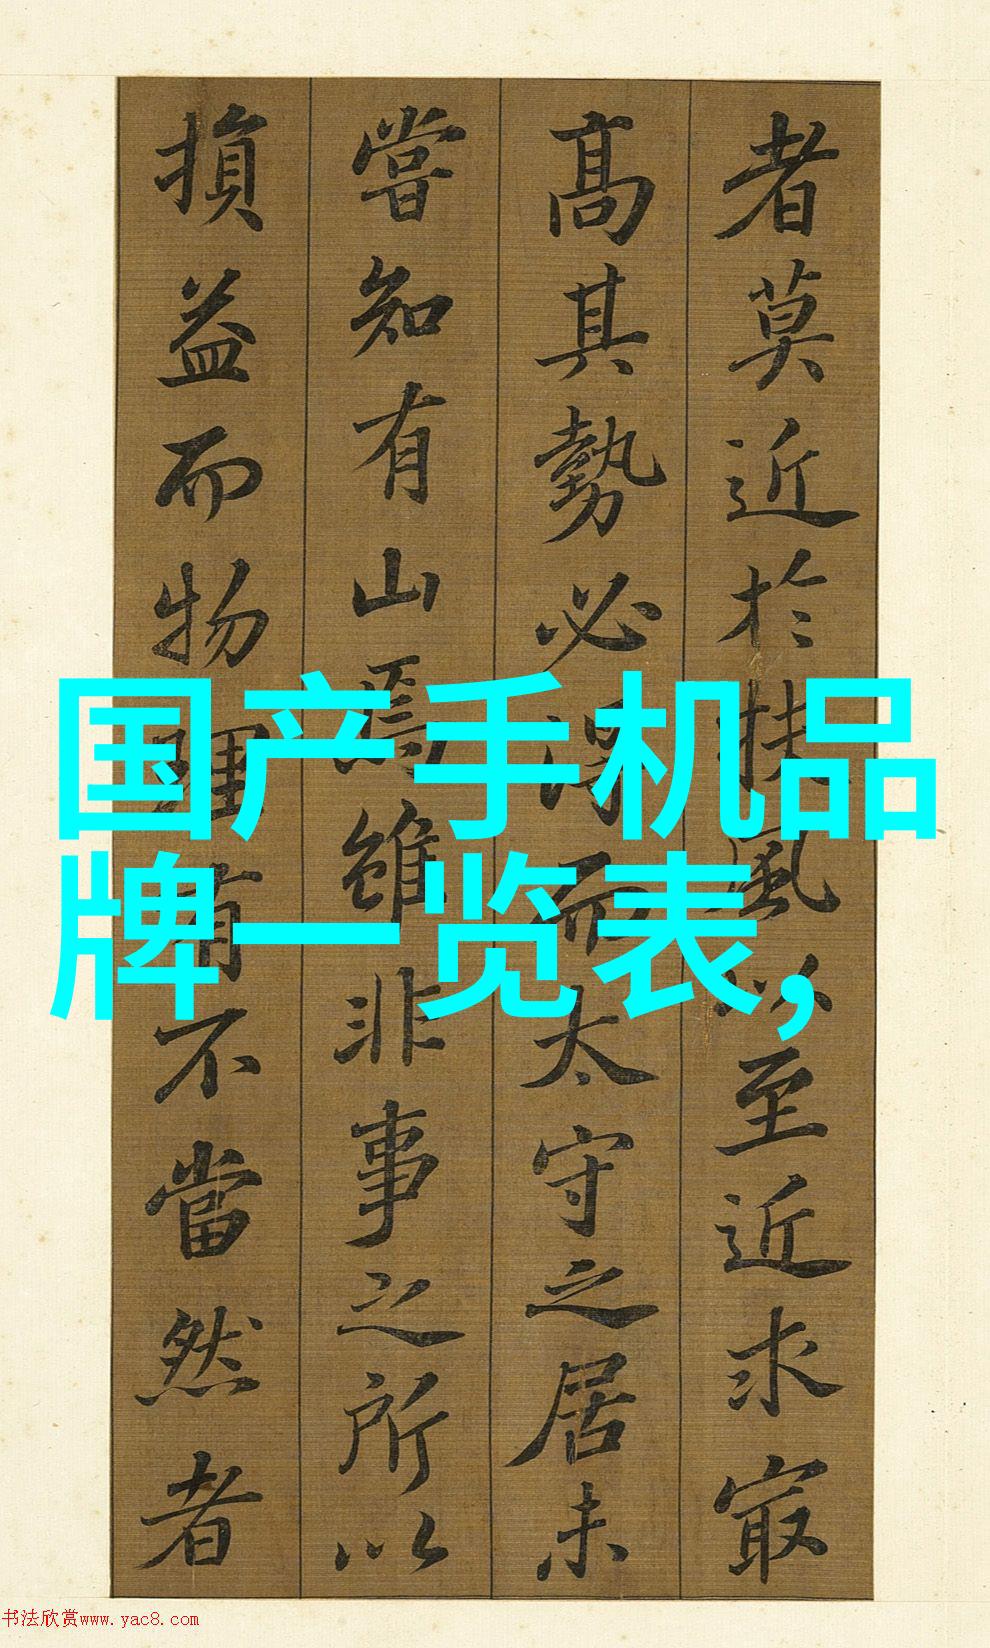 者莫近於扶風以至近求㝡
髙其勢必得而太守之居未
嘗知有山焉雖非事之所以
損益而物理有不當然者
国产手机品
牌一览表,
书法欣赏www.yac8.com